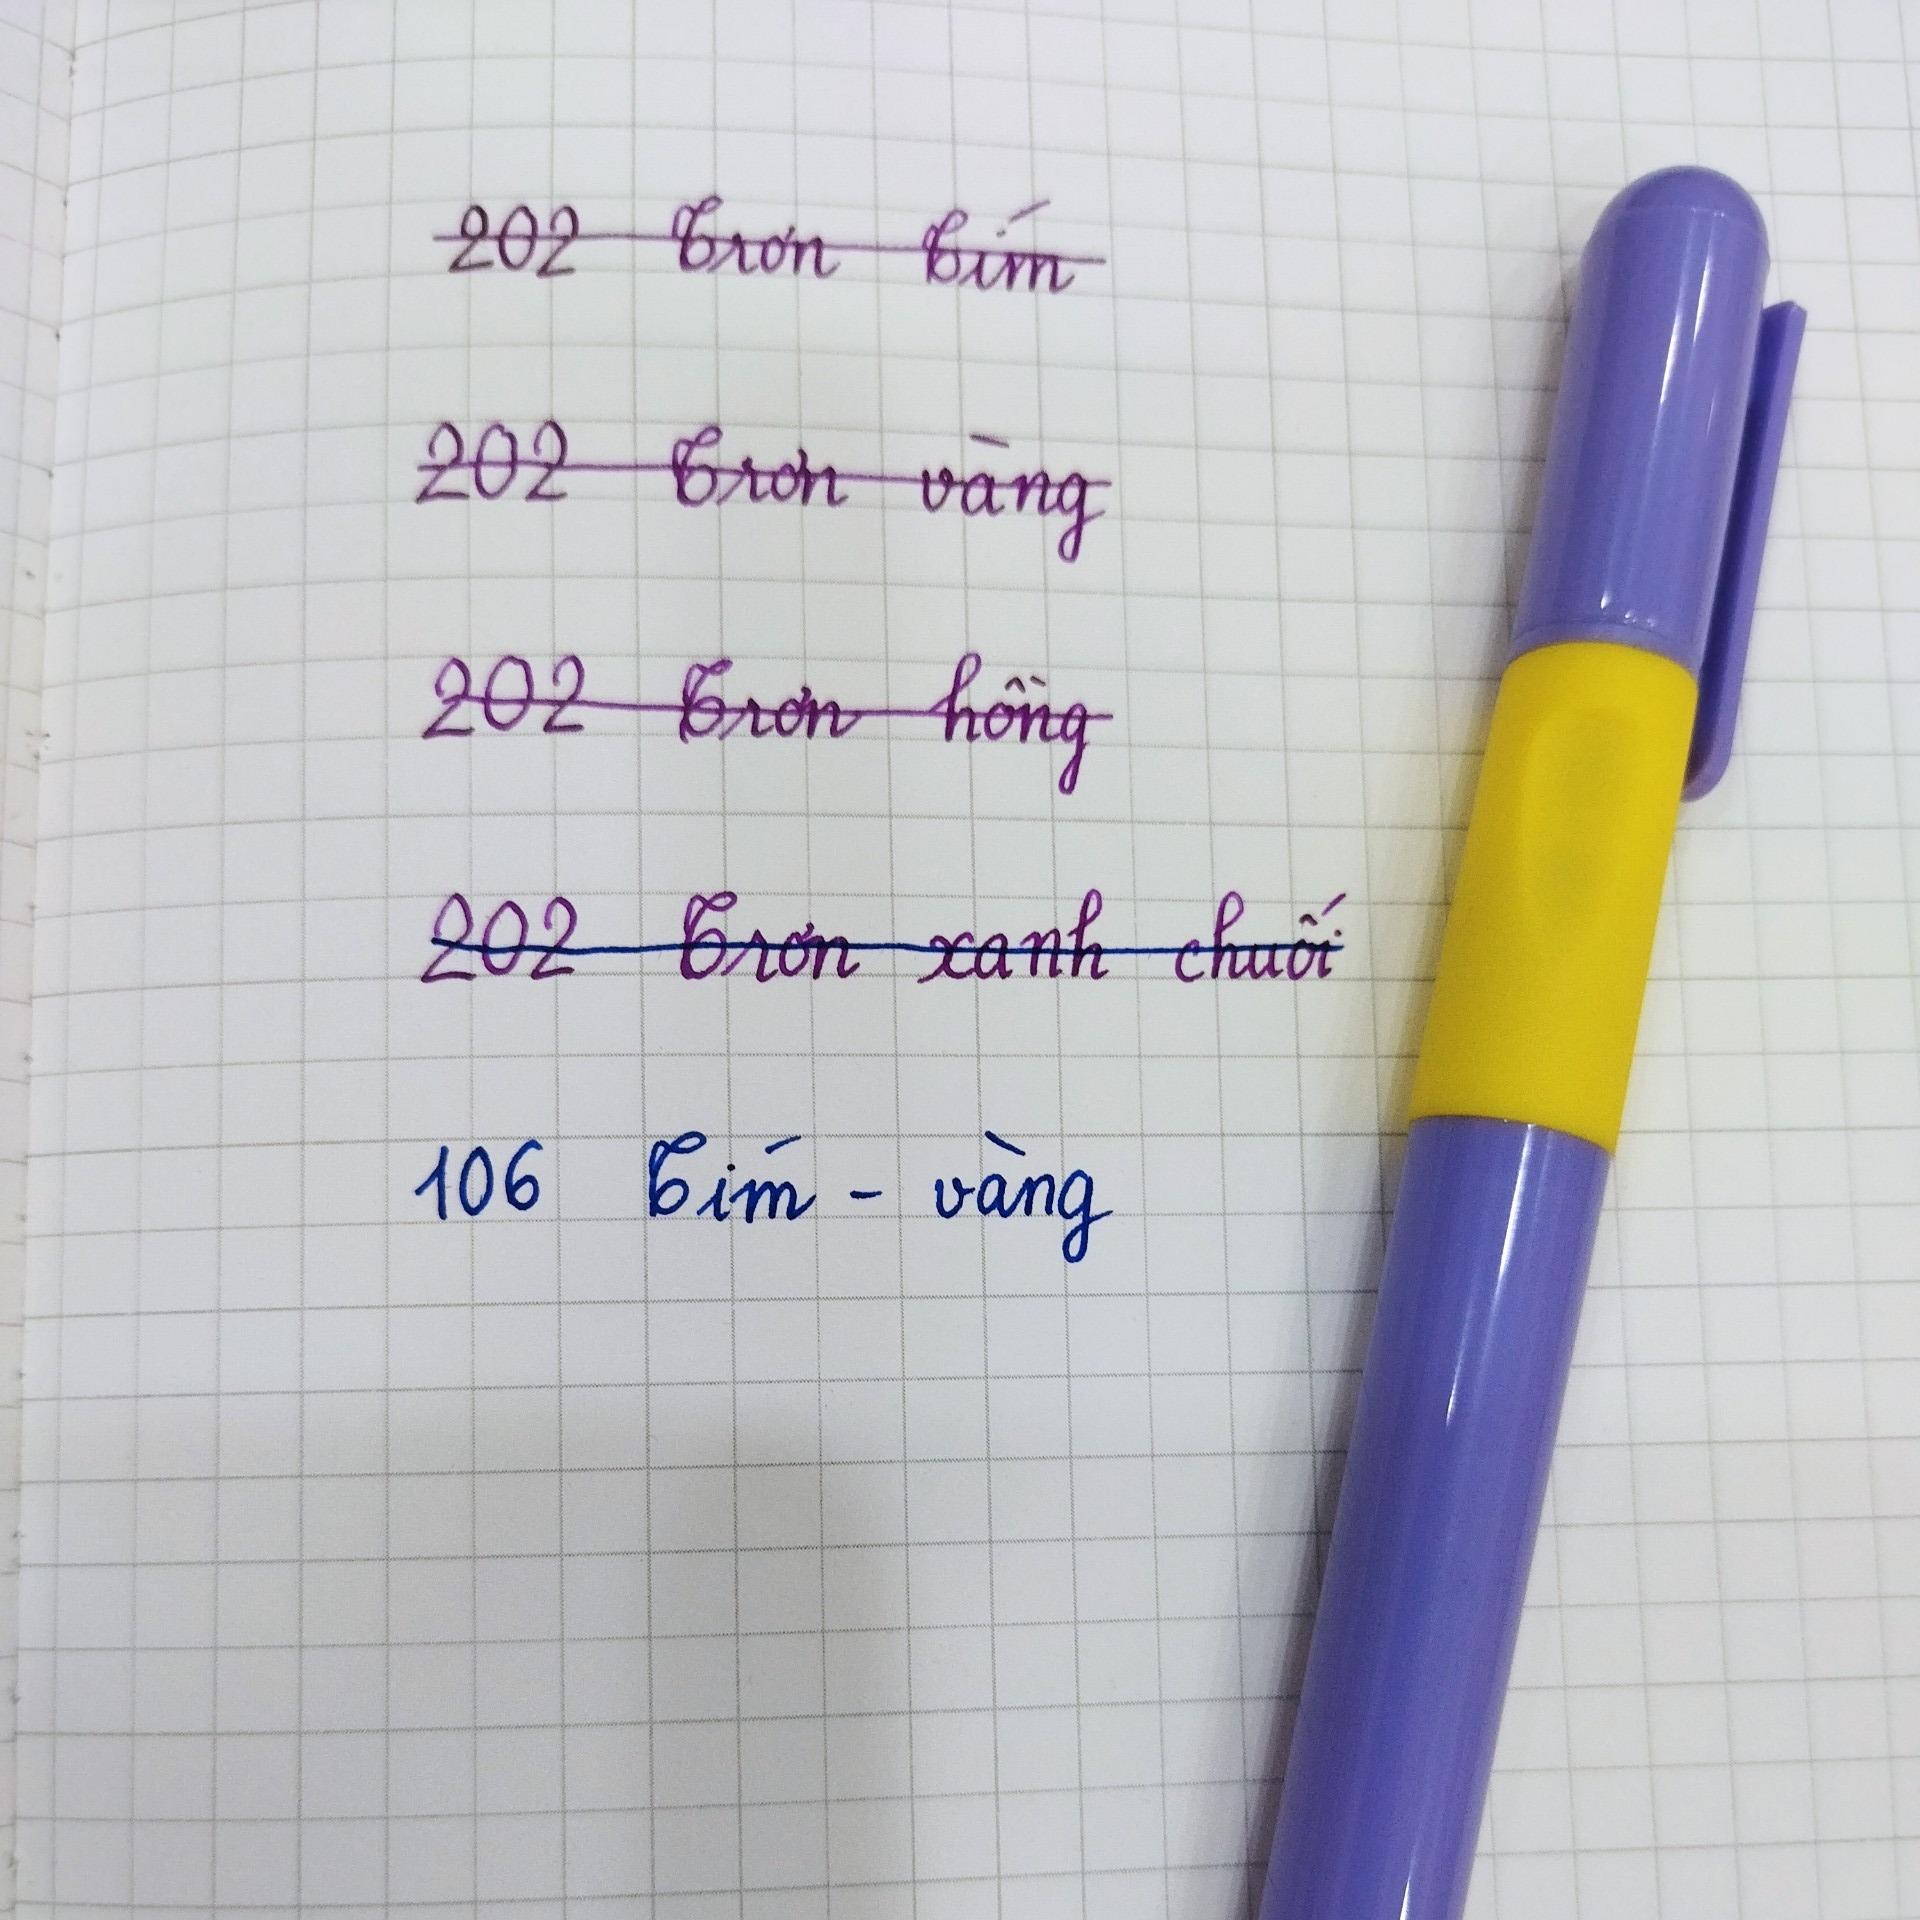 202 trơn tím
202 trơn vàng
202 trơn hồng
202 trơn xanh chuối
106 tím - vàng